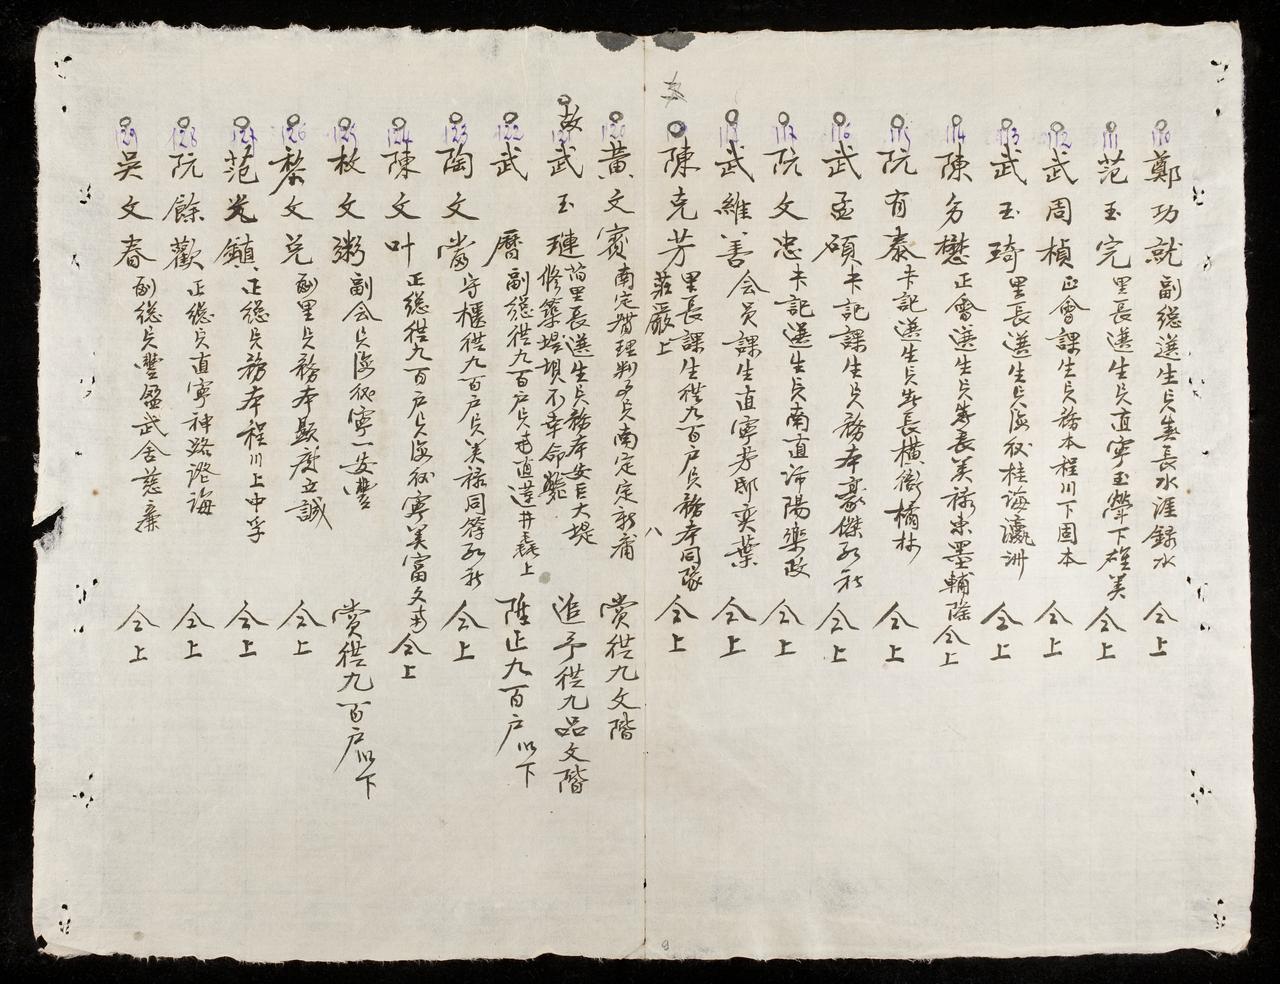 110 鄭功就 副總選生員無長水涯録水 仝上
111 范玉完 里長選生員直寧玉 下雄美 仝上
112 武周楨 正會課生員務本程川下固本 仝上
113 武玉琦 里長選生員海 桂海瀛洲 仝上
114 陳 懋 正會選生員無長美祿東墨輔 仝上
115 阮有泰 卡記選生員無長橫衙橘林 仝上
116 武孟碩 卡記課生員務本豪傑 社 仝上
117 阮文忠 卡記選生員南直沛陽樂政 仝上
118 武維善 会員課生直寧芳邸奕葉 仝上
陳克芳 里長課生從九百戶員務本同隊 仝上
莊嚴上
120 黃文寶 南定 理判 員南定定新甫 賞從九文階
故 121 武玉璉 前里長選生員務本安巨大堤 追予從九品文階
修築堤垻不幸命斃
122 武曆 副總從九百戶員 直蓮井 上 陞正九百戶以下
123 陶文當 守櫃從九百戶員美祿同符 社 仝上
124 陳文叶 正總從九百戶員海 寧美富文 仝上
125 枚文粥 副会員海 寧一安豐 賞從九百戶以下
126 黎文兑 副里員務本顯慶立誠 仝上
127 范光鎮 正總員務本程川上中孚 仝上
128 阮餘歡 正總員直寧神路 海 仝上
129 吳文春 副總員豐盈武舍慈 仝上
9